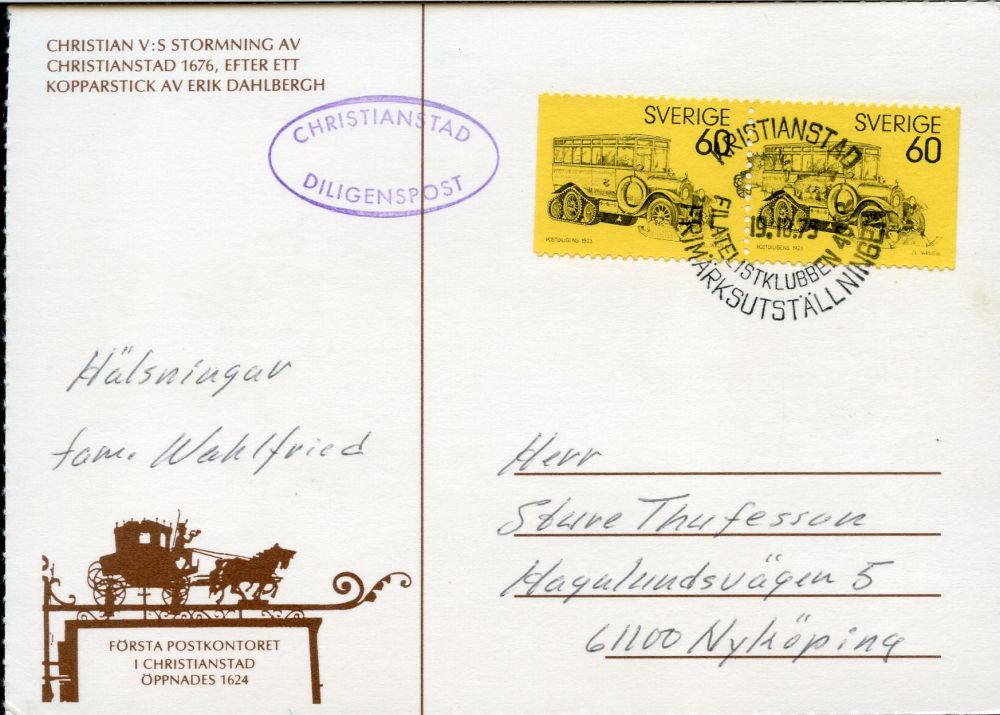 CHRISTIAN V:S STORMNING AV
CHRISTIANSTAD 1676, EFTER ETT
KOPPARSTICK AV ERIK DAHLBERGH
CHRISTIANSTAD
DILIGENSPOST
SVERIGE
60
POSTDILIGENS 1923
SVERIGE
60
POSTDILIGENS 1923
KRISTIANSTAD
19.10.75
FILATELISTKLUBBEN
FRIMÄRKSUTSTÄLLNINGEN
Hälsningar
fam. Wahlfried
FÖRSTA POSTKONTORET
I CHRISTIANSTAD
ÖPPNADES 1624
Herr
Sture Thufesson
Hagalundsvägen 5
61100 Nyköping